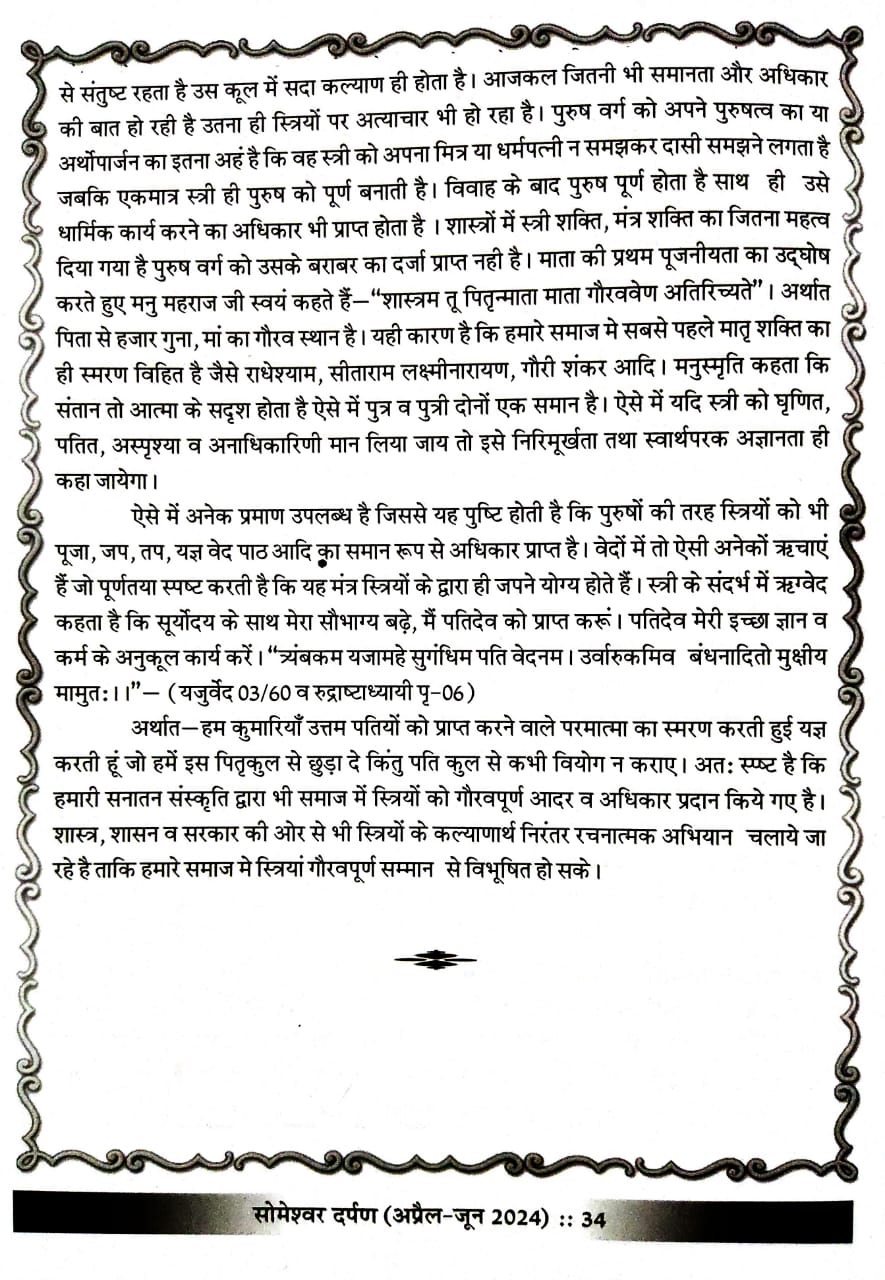 से संतुष्ट रहता है उस कूल में सदा कल्याण ही होता है। आजकल जितनी भी समानता और अधिकार
की बात हो रही है उतना ही स्त्रियों पर अत्याचार भी हो रहा है। पुरुष वर्ग को अपने पुरुषत्व का या
अर्थोपार्जन का इतना अहं है कि वह स्त्री को अपना मित्र या धर्मपत्नी न समझकर दासी समझने लगता है
जबकि एकमात्र स्त्री ही पुरुष को पूर्ण बनाती है। विवाह के बाद पुरुष पूर्ण होता है साथ ही उसे
धार्मिक कार्य करने का अधिकार भी प्राप्त होता है । शास्त्रों में स्त्री शक्ति, मंत्र शक्ति का जितना महत्व
दिया गया है पुरुष वर्ग को उसके बराबर का दर्जा प्राप्त नही है। माता की प्रथम पूजनीयता का उद्घोष
करते हुए मनु महराज जी स्वयं कहते हैं—“शास्त्रम तू पितृन्माता माता गौरववेण अतिरिच्यते”। अर्थात
पिता से हजार गुना, मां का गौरव स्थान है। यही कारण है कि हमारे समाज मे सबसे पहले मातृ शक्ति का
ही स्मरण विहित है जैसे राधेश्याम, सीताराम लक्ष्मीनारायण, गौरी शंकर आदि। मनुस्मृति कहता कि
संतान तो आत्मा के सदृश होता है ऐसे में पुत्र व पुत्री दोनों एक समान है। ऐसे में यदि स्त्री को घृणित,
पतित, अस्पृश्या व अनाधिकारिणी मान लिया जाय तो इसे निरिमूर्खता तथा स्वार्थपरक अज्ञानता ही
कहा जायेगा।
ऐसे में अनेक प्रमाण उपलब्ध है जिससे यह पुष्टि होती है कि पुरुषों की तरह स्त्रियों को भी
पूजा, जप, तप, यज्ञ वेद पाठ आदि का समान रूप से अधिकार प्राप्त है। वेदों में तो ऐसी अनेकों ऋचाएं
हैं जो पूर्णतया स्पष्ट करती है कि यह मंत्र स्त्रियों के द्वारा ही जपने योग्य होते हैं। स्त्री के संदर्भ में ऋग्वेद
कहता है कि सूर्योदय के साथ मेरा सौभाग्य बढ़े, मैं पतिदेव को प्राप्त करूं। पतिदेव मेरी इच्छा ज्ञान व
कर्म के अनुकूल कार्य करें। “त्र्यंबकम यजामहे सुगंधिम पति वेदनम। उर्वारुकमिव बंधनादितो मुक्षीय
मामुत:।।”— (यजुर्वेद 03/60 व रुद्राष्टाध्यायी पृ-06)
अर्थात—हम कुमारियाँ उत्तम पतियों को प्राप्त करने वाले परमात्मा का स्मरण करती हुई यज्ञ
करती हूं जो हमें इस पितृकुल से छुड़ा दे किंतु पति कुल से कभी वियोग न कराए। अत: स्पष्ट है कि
हमारी सनातन संस्कृति द्वारा भी समाज में स्त्रियों को गौरवपूर्ण आदर व अधिकार प्रदान किये गए है।
शास्त्र, शासन व सरकार की ओर से भी स्त्रियों के कल्याणार्थ निरंतर रचनात्मक अभियान चलाये जा
रहे है ताकि हमारे समाज मे स्त्रियां गौरवपूर्ण सम्मान से विभूषित हो सके।
सोमेश्वर दर्पण (अप्रैल-जून 2024) :: 34